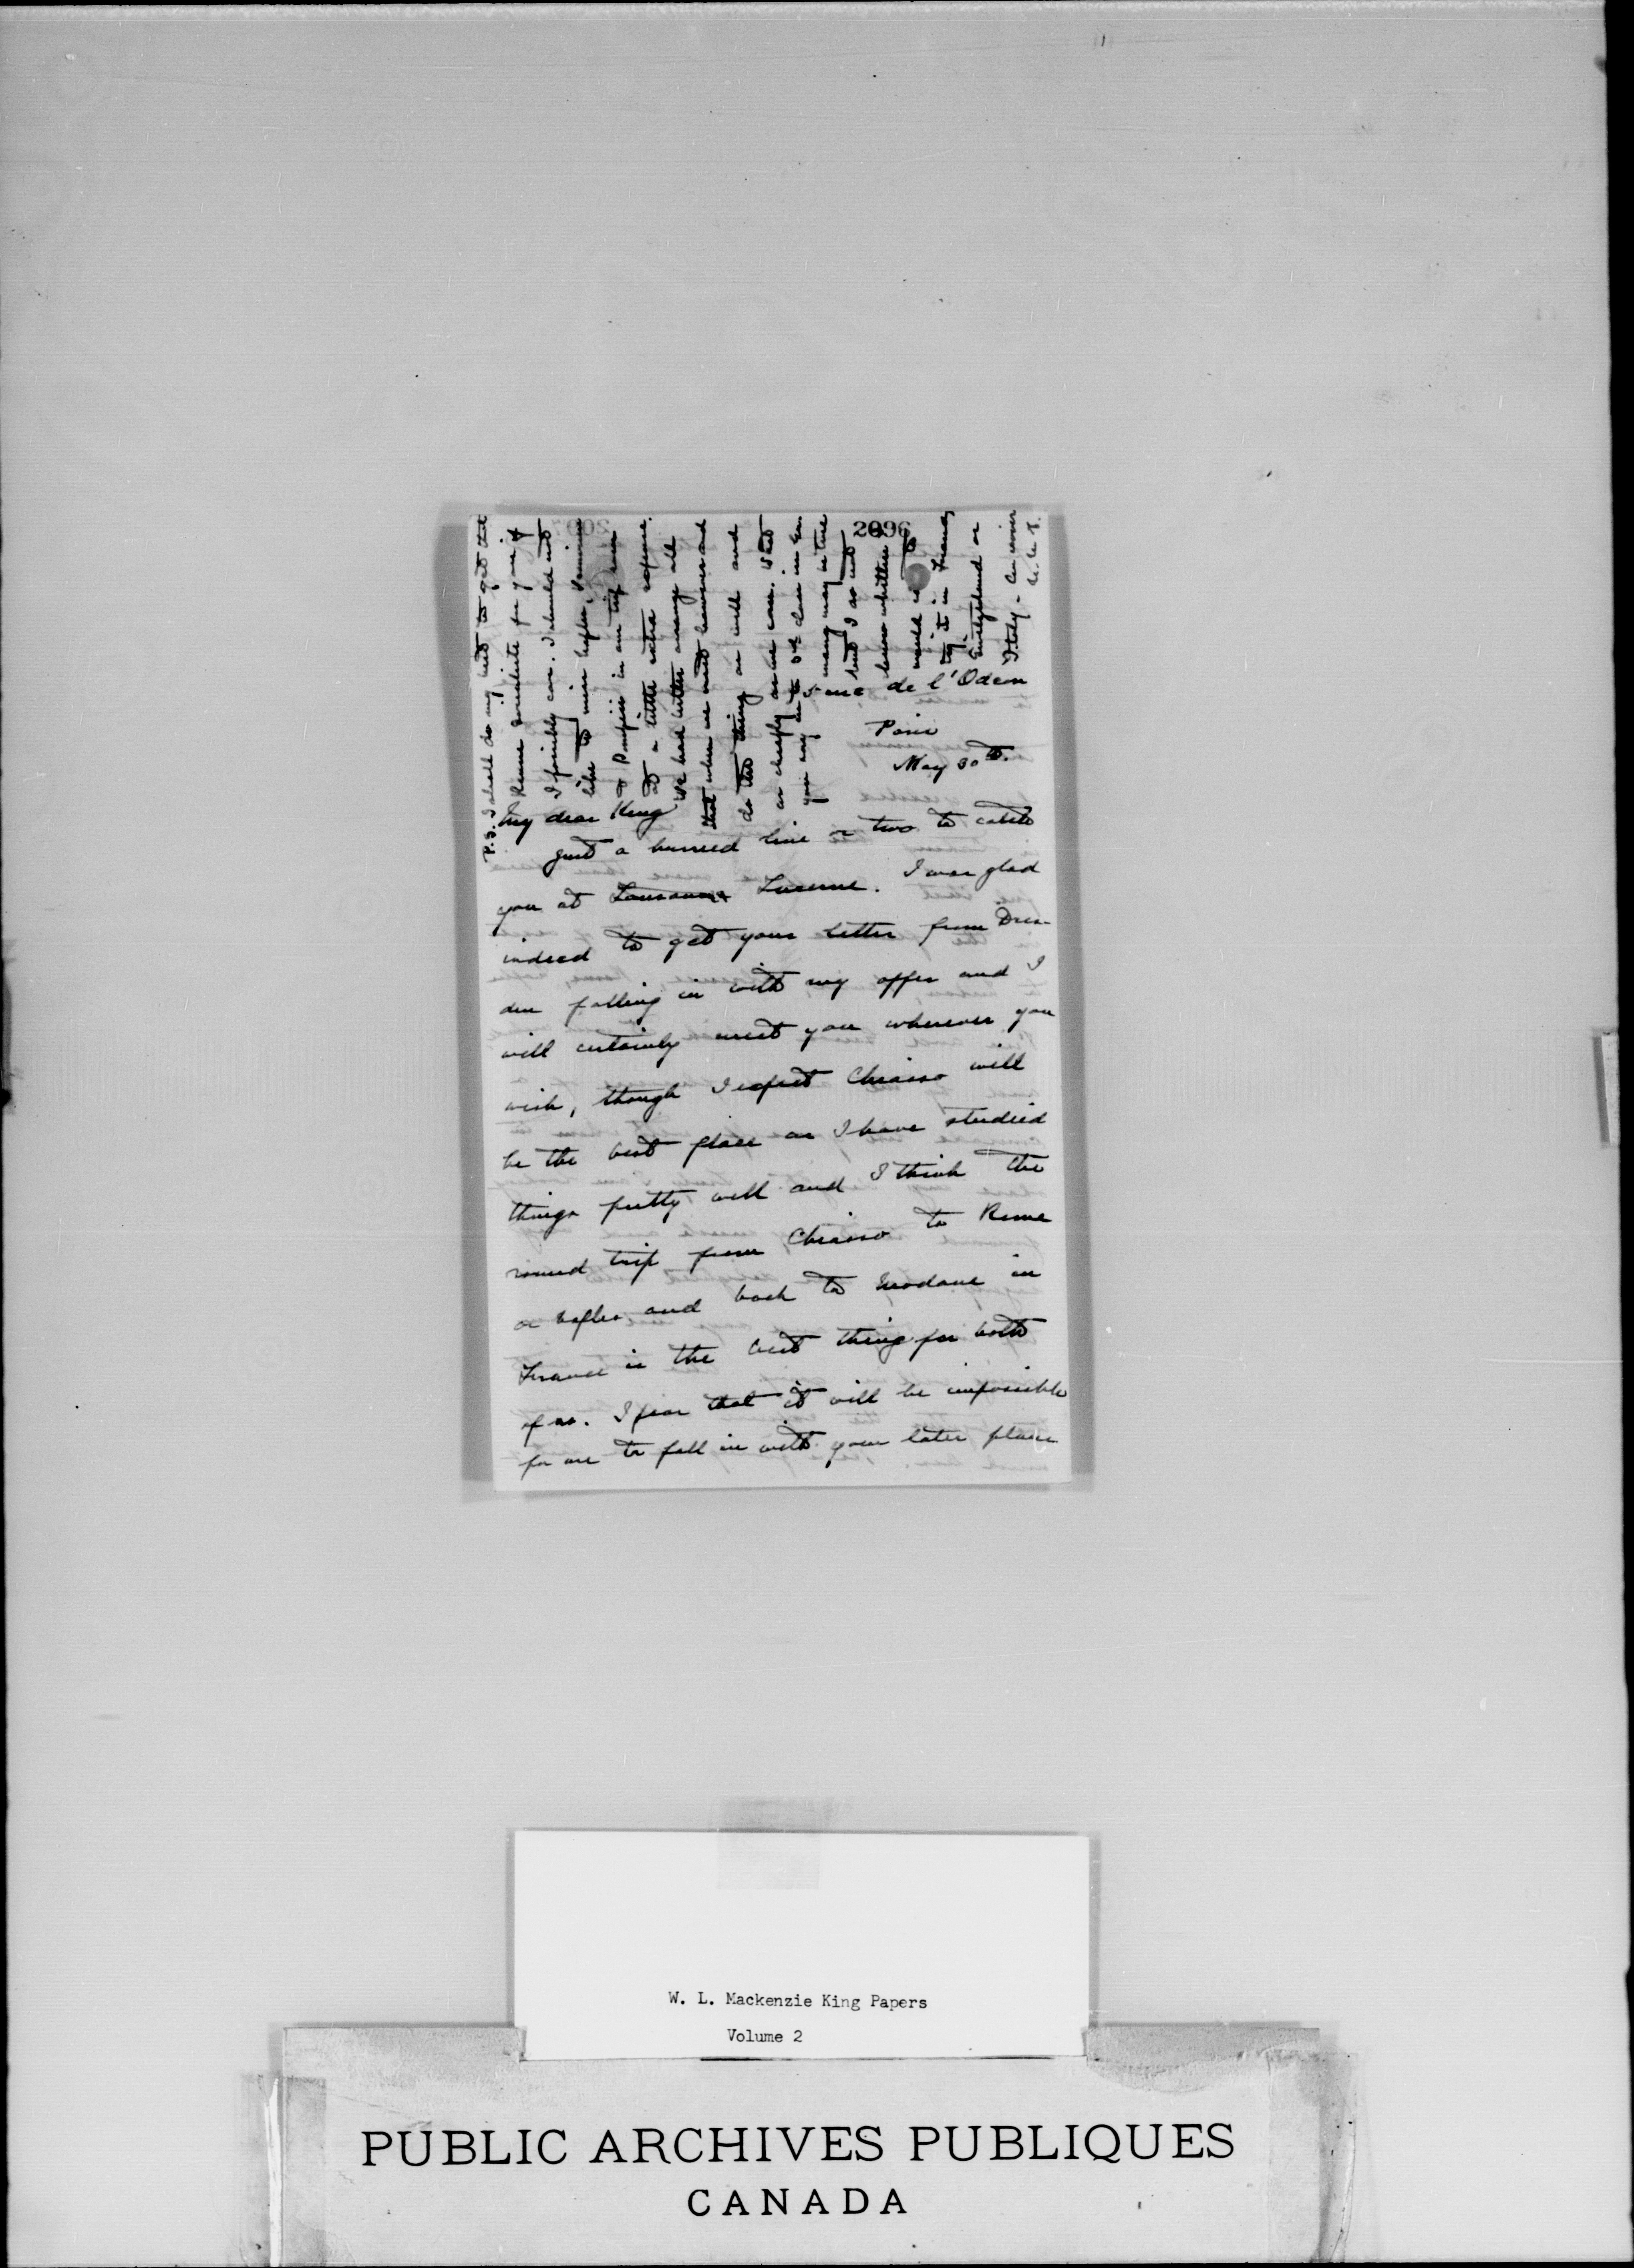 2096
5 rue de l'Odeon
Paris
May 30th.
My dear King
Just a hurried line or two to catch
you at Lausanne Lucerne. I was glad
indeed to get your letter from Dres-
den falling in with my offer and I
will certainly meet you wherever you
wish, though I expect Chiasso will
be the best place as I have studied
things pretty well and I think the
round trip from Chiasso to Rome
or Naples and back to Modane in
France is the best thing for both
of us. I fear that it will be impossible
for me to fall in with your later plans
P.S. I shall do my best to get that
Rome for you if
I possibly can. I should not
like to miss Naples, Vesuvius
& Pompeii in our trip even
at a little extra expense.
We had better arrange all
that when we meet however and
do the thing as well and
as cheaply as we can. What
you say as to 3rd class in Ger-
many may be true
but I do not
know whether
would do to
try it in France,
Switzerland or
Italy -
W. L. Mackenzie King Papers
Volume 2
PUBLIC ARCHIVES PUBLIQUES
CANADA